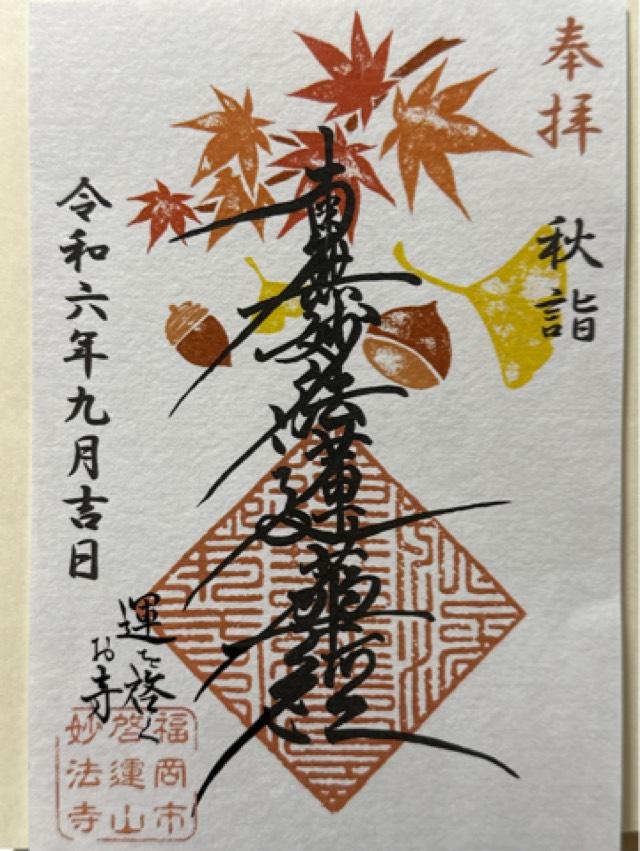 奉拝
秋詣
南無妙法蓮華經
令和六年九月吉日
運を啓く
お寺
福岡市
啓運山
妙法寺